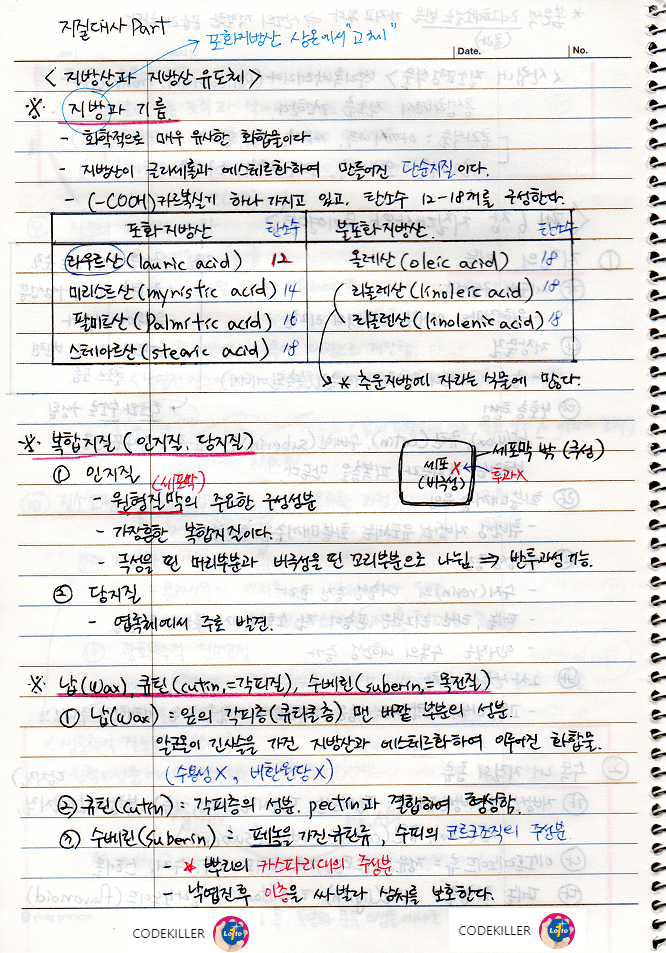 지질대사 Part
포화지방산 상온에서 "고체"
Date.
No.
< 지방산과 지방산 유도체 >
※ 지방과 기름.
- 화학적으로 매우 유사한 화합물이다.
- 지방산이 글리세롤과 에스테르화하여 만들어진 단순지질이다.
- (-COOH)카르복실기 하나 가지고 있고, 탄소수 12-18개를 구성한다.
포화지방산 탄소수 불포화지방산. 탄소수
라우르산(lauric acid) 12 올레산(oleic acid) 18
미리스트산(myristic acid) 14 리놀레산(linoleic acid) 18
팔미트산(palmitic acid) 16 리놀렌산(linolenic acid) 18
스테아르산(stearic acid) 18
* 추운지방에 자라는 식물에 많다.
※. 복합지질 (인지질, 당지질)
① 인지질
(세포막)
- 원형질막의 주요한 구성성분
- 가장흔한 복합지질이다.
- 극성을 띤 머리부분과 비극성을 띤 꼬리부분으로 나뉨. ⇒ 반투과성기능.
세포 X
(비극성)
세포막 밖 (극성)
투과X
② 당지질
- 엽록체에서 주로 발견.
※ 납(wax), 큐틴(cutin,=각피질), 수베린(suberin,=목전질)
① 납(wax) : 잎의 각피층(큐티클층) 맨 바깥 부분의 성분.
알코올이 긴사슬을 가진 지방산과 에스테르화하여 이루어진 화합물.
(수용성X, 비환원당X)
② 큐틴(cutin) : 각피층의 성분. pectin과 결합하여 형성함.
③ 수베린(suberin) : 페놀을 가진큐틴류, 수피의 코르크조직의 주성분
- * 뿌리의 카스파리대의 주성분
- 낙엽진후 이층을 싸발라 상처를 보호한다.
CODEKILLER
Lotto
CODEKILLER
Lotto